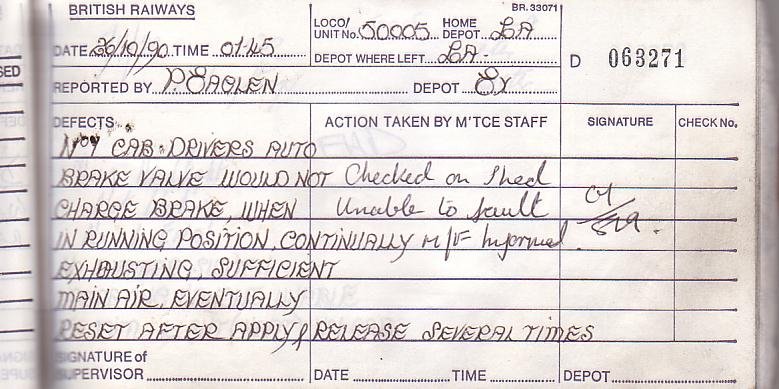 BRITISH RAIWAYS
BR. 33071
LOCO/ UNIT No. 50005 HOME DEPOT LA
DATE 26/10/90 TIME 01.45 DEPOT WHERE LEFT LA.
D 063271
REPORTED BY P. DEPOT EX
DEFECTS ACTION TAKEN BY M'TCE STAFF SIGNATURE CHECK No.
No 1 CAB. DRIVERS AUTO
BRAKE VALVE WOULD NOT Checked on Shed
CHARGE BRAKE, WHEN Unable to fault
IN RUNNING POSITION, CONTINUALLY M/F Informed.
EXHAUSTING, SUFFICIENT
MAIN AIR, EVENTUALLY
RESET AFTER APPLY & RELEASE SEVERAL TIMES
SIGNATURE of
SUPERVISOR DATE TIME DEPOT